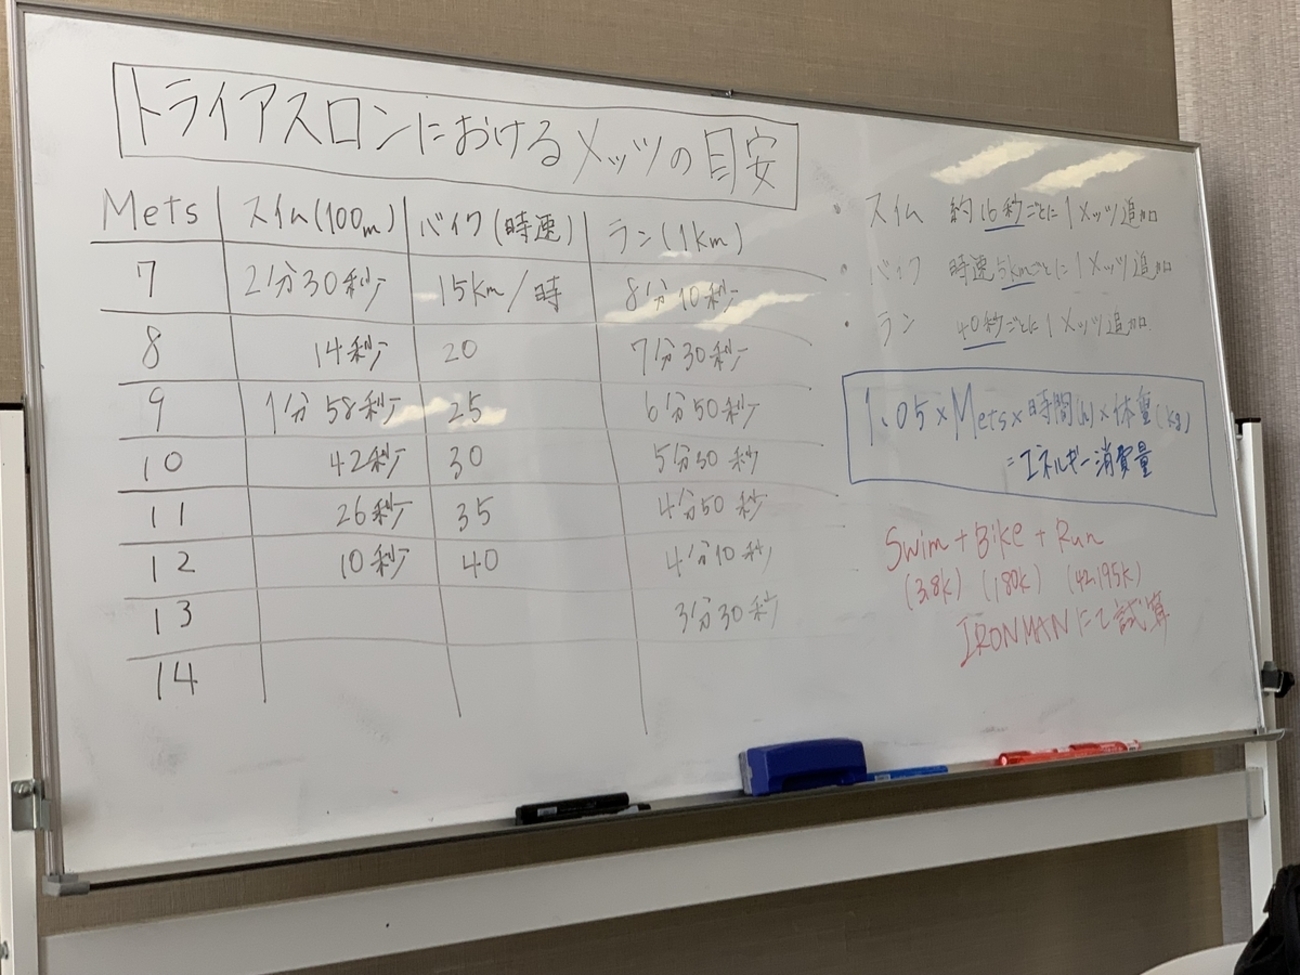 トライアスロンにおけるメッツの目安
Mets スイム(100m) バイク(時速) ラン(1km)
7 2分30秒 15km/時 8分10秒
8 14秒 20 7分30秒
9 1分58秒 25 6分50秒
10 42秒 30 5分30秒
11 26秒 35 4分50秒
12 10秒 40 4分10秒
13 3分30秒
14
・スイム 約16秒ごとに1メッツ追加
・バイク 時速5kmごとに1メッツ追加
・ラン 40秒ごとに1メッツ追加
1.05×Mets×時間(h)×体重(kg)
=エネルギー消費量
Swim+Bike+Run
(3.8k) (180k) (42.195k)
IRONMANにて試算